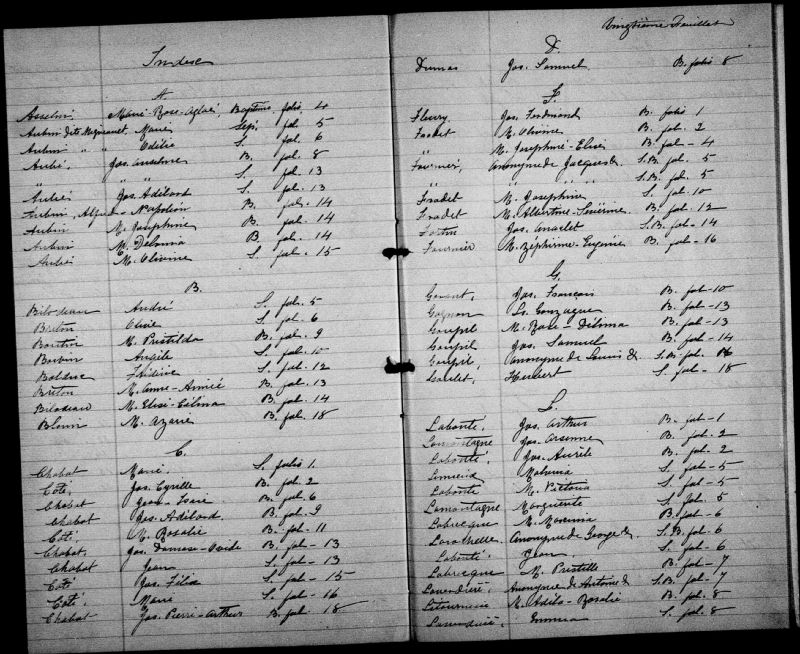 Index
A
Asselin, Marie-Rose-Aglaé, Baptême folio 4
Aubin dite Marie Sép. fol. 5
Aubin " " Odélie S. fol. 6
Aubé, Jos. Anselme B. fol. 8
" " " S. fol. 13
Aubé Jos. Adélard S. fol. 13
Aubin, Alfred-Napoléon B. fol. 14
Aubin M. Joséphine B. fol. 14
Aubin M. Delvina B. fol. 14
Aubé M. Olivine S. fol. 15
B.
Bilodeau André S. fol. 5
Breton Olivier S. fol. 6
Boutin M. Pristilda B. fol. 9
Angèle S. fol. 10
Bolduc S. fol. 12
Breton M. Anne-Aimée B. fol. 13
Bilodeau M. Elise-Célina B. fol. 14
Blouin M. Azarie B. fol. 18
C.
Chabot Marie. S. folio 1.
Côté, Jos. Cyrille B. fol. 2
Chabot Isaïe B. fol. 6
Chabot Jos. Adélard B. fol. 9
Côté. M. Rosalie B. fol. 11
Chabot, Jos. Damase-Ovide B. fol-13
Chabot Jean S. fol-13
Côté Jos. Félix S. fol-15
Côté, Marie S. fol-16
Chabot Jos. Pierre-Arthur B. fol. 18
Vingtième Feuillet
D.
Dumas Jos. Samuel B. folio 8
F.
Fleury, Jos. Ferdinand B. folio 1
Fradet M. Olivine B. fol. 2
" M. Joséphine-Elise B. fol-4
Fournier, Anonyme de Jacques & S.B. fol. 5
" " " " S.B. fol. 5
Fradet M. Joséphine S. fol. 10
Fradet M. Albertine-Sévérine B. fol-12
Fortin Jos. Anaclet S.B. fol-14
Fournier M. Zéphirine-Eugénie B. fol-16
G.
Jos. François B. fol-10
Gagnon Ls. Gonzague B. fol-13
Goupil M. Rose-Délima B. fol-13
Goupil Jos. Samuel B. fol-14
Goupil, Anonyme de Louis & S.B. fol. 16
Goulet, Herbert S. fol-18
L.
Labonté, Jos. Arthur B. fol-1
Lamontagne Jos. Arsenne B. fol. 2
Labonté, Jos. Aurèle B. fol. 2
Lemieux Malvina S. fol-5
Labonté M. Victoria S. fol-5
Lamontagne Marguerite S. fol. 5
Labrecque M. B. fol-6
Larochelle Anonyme de George & S.B. fol. 6
Labonté Jean S. fol-6
Labrecque M. Pristille B. fol-7
Lavendière, Anonyme de Antoine & S.B. fol-7
Létourneau M. Adèle-Rosalie B. fol. 8
Emma S. fol. 8